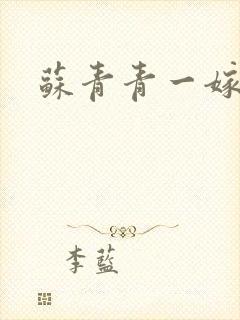 蘇青青一嫁
李藍